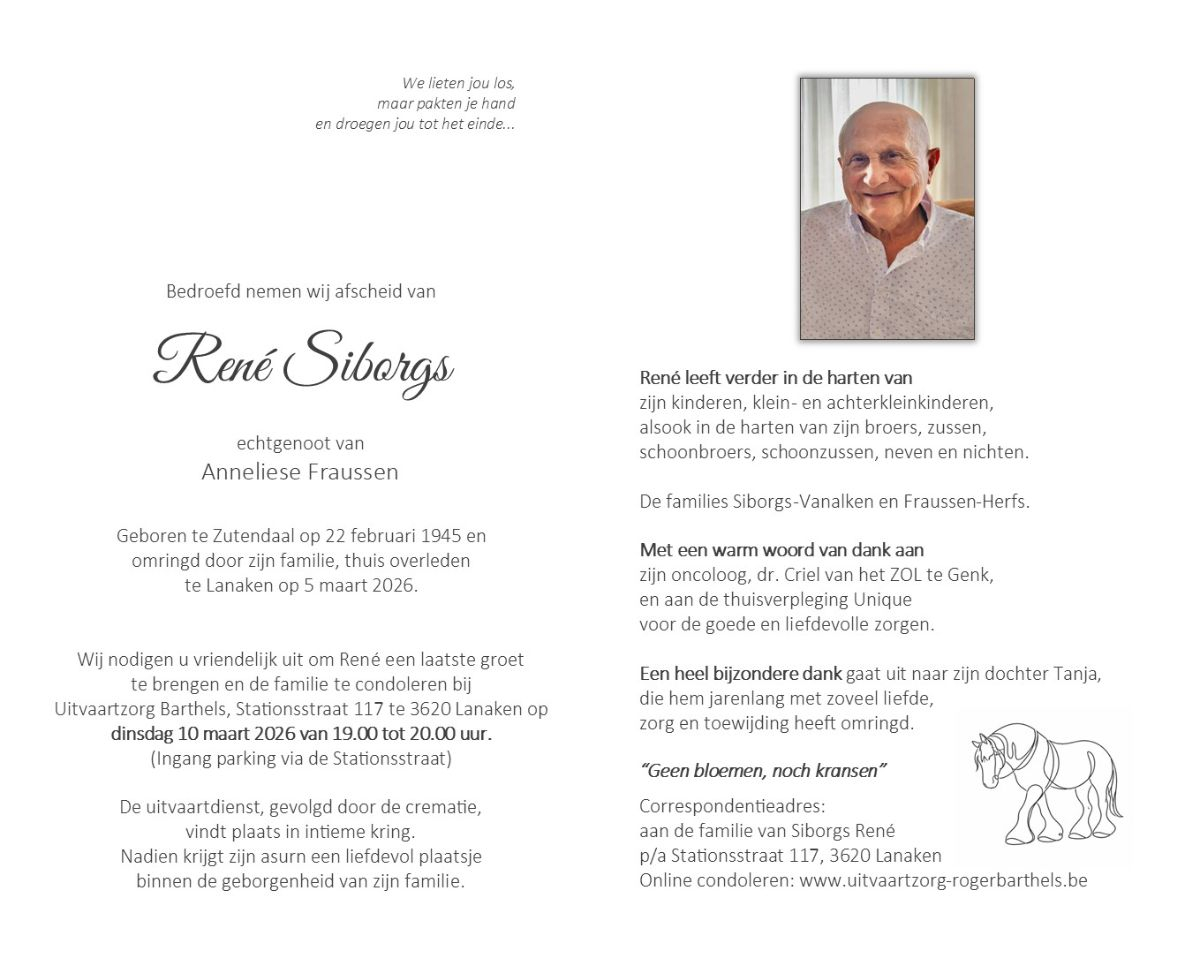 We lieten jou los,
maar pakten je hand
en droegen jou tot het einde...
Bedroefd nemen wij afscheid van
René Siborgs
echtgenoot van
Anneliese Fraussen
Geboren te Zutendaal op 22 februari 1945 en
omringd door zijn familie, thuis overleden
te Lanaken op 5 maart 2026.
Wij nodigen u vriendelijk uit om René een laatste groet
te brengen en de familie te condoleren bij
Uitvaartzorg Barthels, Stationsstraat 117 te 3620 Lanaken op
dinsdag 10 maart 2026 van 19.00 tot 20.00 uur.
(Ingang parking via de Stationsstraat)
De uitvaartdienst, gevolgd door de crematie,
vindt plaats in intieme kring.
Nadien krijgt zijn asurn een liefdevol plaatsje
binnen de geborgenheid van zijn familie.
René leeft verder in de harten van
zijn kinderen, klein- en achterkleinkinderen,
alsook in de harten van zijn broers, zussen,
schoonbroers, schoonzussen, neven en nichten.
De families Siborgs-Vanalken en Fraussen-Herfs.
Met een warm woord van dank aan
zijn oncoloog, dr. Criel van het ZOL te Genk,
en aan de thuisverpleging Unique
voor de goede en liefdevolle zorgen.
Een heel bijzondere dank gaat uit naar zijn dochter Tanja,
die hem jarenlang met zoveel liefde,
zorg en toewijding heeft omringd.
“Geen bloemen, noch kransen”
Correspondentieadres:
aan de familie van Siborgs René
p/a Stationsstraat 117, 3620 Lanaken
Online condoleren: www.uitvaartzorg-rogerbarthels.be